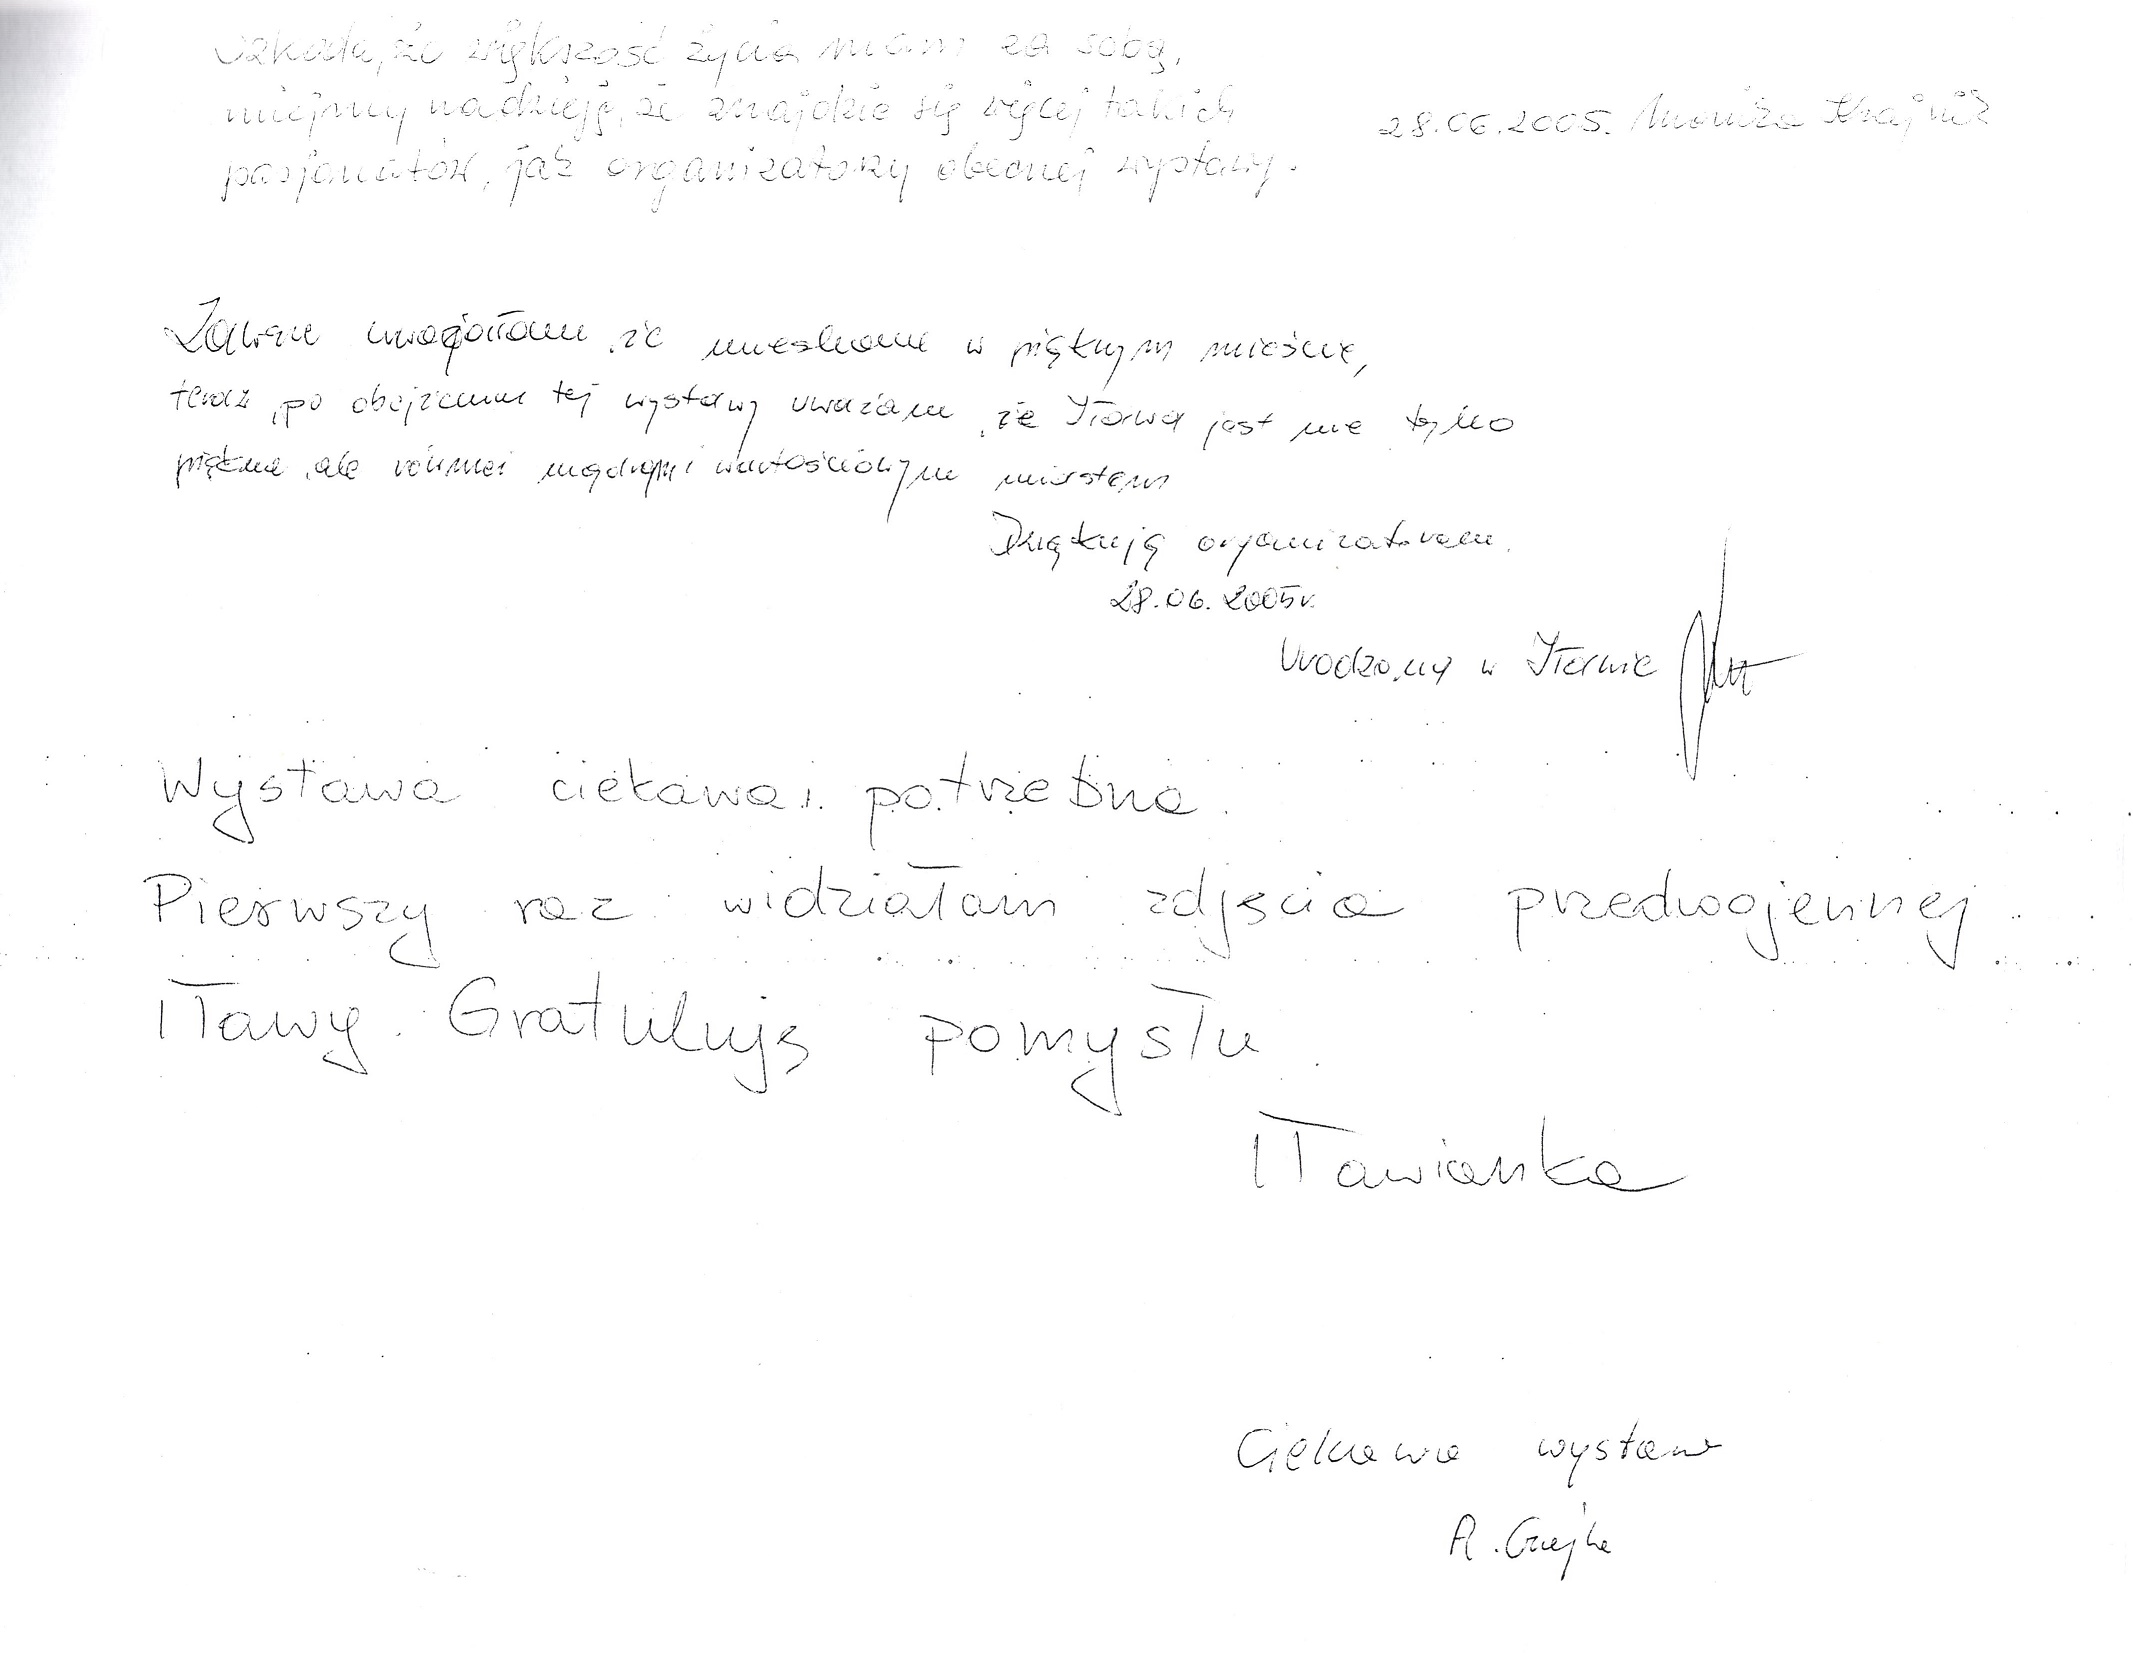 Szkoda, że większość życia mam za sobą,
miejmy nadzieję, że znajdzie się więcej takich
pasjonatów, jak organizatorzy obecnej wystawy.
28.06.2005. Monika Krajnik
Zawsze uważałam, że mieszkam w pięknym mieście,
teraz, po obejrzeniu tej wystawy uważam, że Iława jest nie tylko
piękna, ale również mądrym i wartościowym miastem
Dziękuję organizatorom.
28.06.2005r.
Urodzony w Iławie
Wystawa ciekawa i potrzebna.
Pierwszy raz widziałam zdjęcia przedwojennej
Iławy. Gratuluję pomysłu.
Iławianka
Ciekawa wystawa